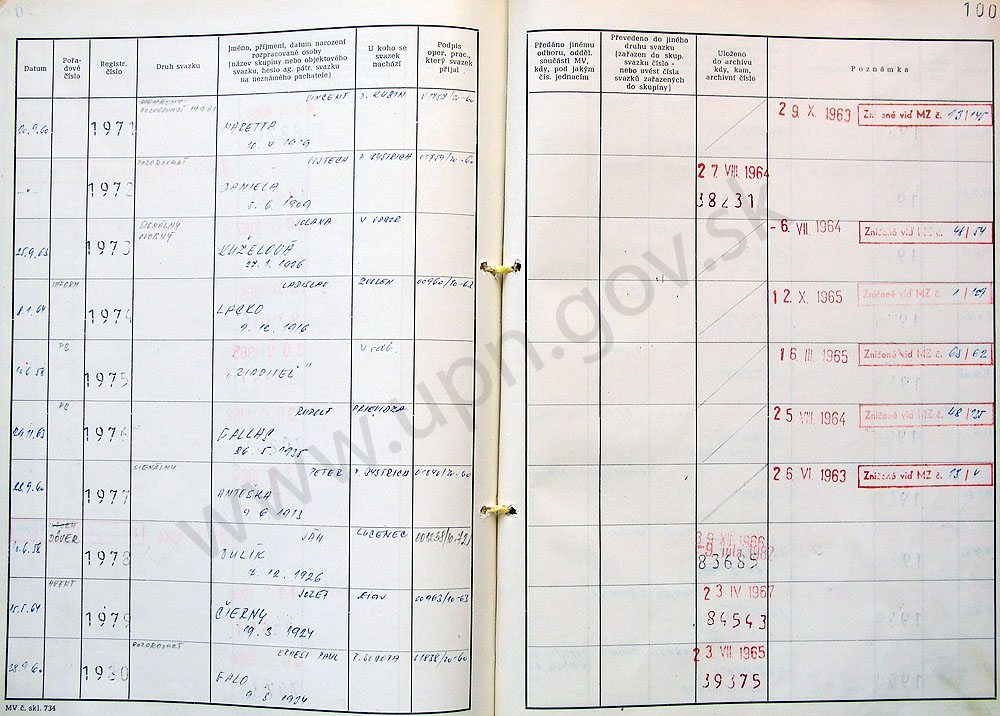 100
Datum
Pořa-
dové
číslo
Registr.
číslo
Druh svazku
Jméno, příjmení, datum narození
rozpracované osoby
(název skupiny nebo objektového
svazku, heslo ag. pátr. svazku
na neznámého pachatele)
U koho se
svazek
nachází
Podpis
oper. prac.,
který svazek
přijal
Předáno jinému
odboru, odděl.
součásti MV,
kdy, pod jakým
čís. jednacím
Převedeno do jiného
druhu svazku
(zařazen do skup.
svazku číslo -
nebo uvést čísla
svazků zařazených
do skupiny)
Uloženo
do archivu
kdy, kam,
archivní číslo
Poznámka
20.9.60
1971
POZOROVACÍ
VINCENT
MARETTA
10. 4. 1919
D. KUBIN
29. X. 1963
Zničené viď MZ č. 13/145
1972
POZOROVACÍ
VOJTECH
DANIELA
5. 6. 1909
B. BYSTRICA
01759/20-60
27. VIII. 1964
38231
25.9.63
1973
SIGNÁLNY
OSOBNÝ
JOLANA
KUŽELOVÁ
27. 1. 1926
V ODBOR
-6. VII. 1964
Zničené viď MZ č. 48/54
8.1.64
1974
INFORM
LADISLAV
LACKO
9. 12. 1916
ZVOLEN
00960/10-63
12. X. 1965
Zničené viď MZ č. 1/129
1975
PS
"RIADITEĽ"
V odb.
16. III. 1965
Zničené viď MZ č. 63/62
1976
RUDOLF
GALLAS
26. 5. 1935
PRIEVIDZA
25. VIII. 1964
Zničené viď MZ č. 48/135
22.9.60
1977
SIGNÁLNY
PETER
ANTOŠKA
9. 6. 1913
B. BYSTRICA
01840/20-60
26. VI. 1963
Zničené viď MZ č. 13/4
1978
DÔVER
JÁN
SULÍK
7. 12. 1926
LUČENEC
-9. júla 1982
83685
15.5.64
1979
AGENT
JOZEF
ČIERNY
19. 3. 1924
00963/10-63
23. IV 1967
84543
28.9.60
1980
POZOROVACÍ
ERNEST PAUL
FALO
9. 3. 1934
R. SOBOTA
01838/20-60
23. VII. 1965
39375
MV č. skl. 734
www.upn.gov.sk